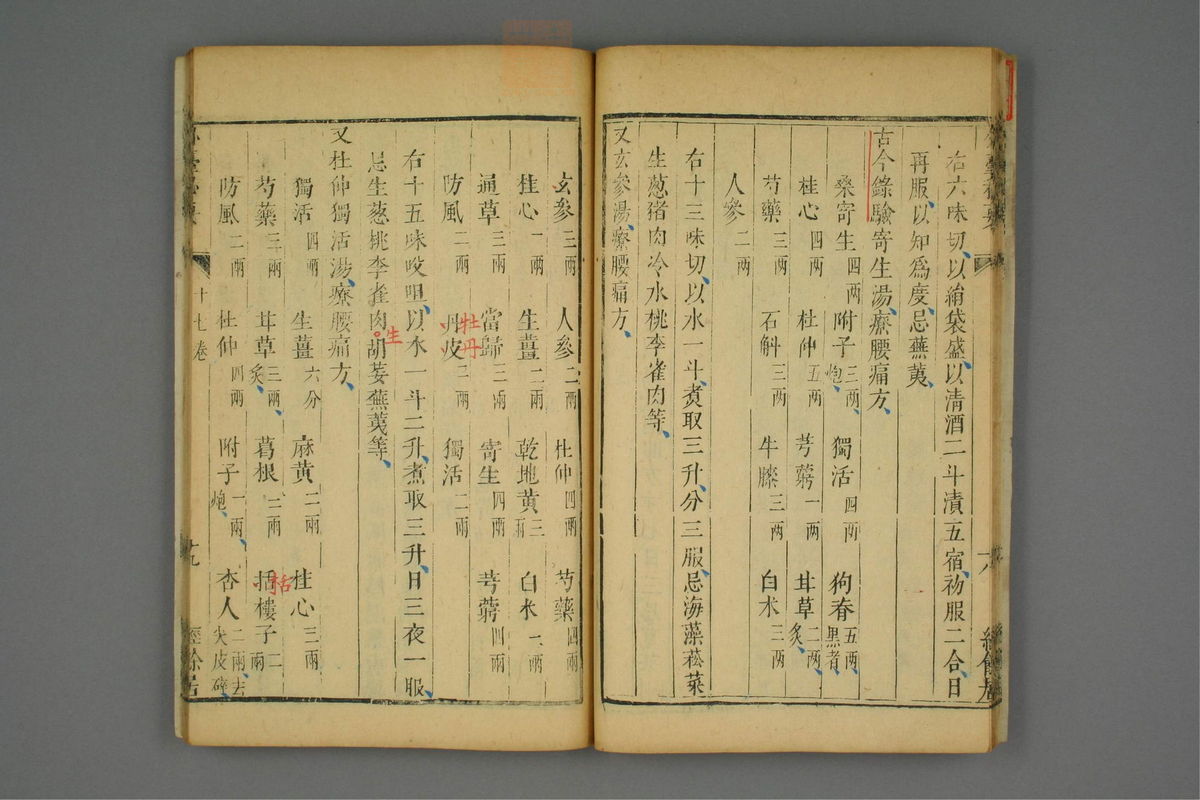 右六味切以絹袋盛以清酒二斗漬五宿初服二合日
再服以知為度忌蕪荑
古今錄驗寄生湯療腰痛方
桑寄生四两 附子三两炮 獨活四两 狗脊五两黑者
桂心四两 杜仲五两 芎藭一两 甘草二两炙
芍藥三两 石斛三两 牛膝三两 白术三两
人參二两
右十三味切以水一斗煮取三升分三服忌海藻菘菜
生葱猪肉冷水桃李雀肉等
又玄參湯療腰痛方
玄參三兩 人參二兩 杜仲四兩 芍藥四兩
桂心一兩 生薑二兩 乾地黃三兩 白术一兩
通草三兩 當歸三兩 寄生四兩 芎藭四兩
防風二兩 丹皮二兩 獨活二兩
牡丹
右十五味㕮咀以水一斗二升煮取三升日三夜一服
忌生葱桃李雀肉胡荽蕪荑等
生
又杜仲獨活湯療腰痛方
獨活四兩 生薑六分 麻黃二兩 桂心三兩
芍藥三兩 甘草三兩炙 葛根三兩 括樓子二兩
栝
防風二兩 杜仲四兩 附子一兩炮 杏人二兩去尖皮碎
十七卷
十九
經餘居